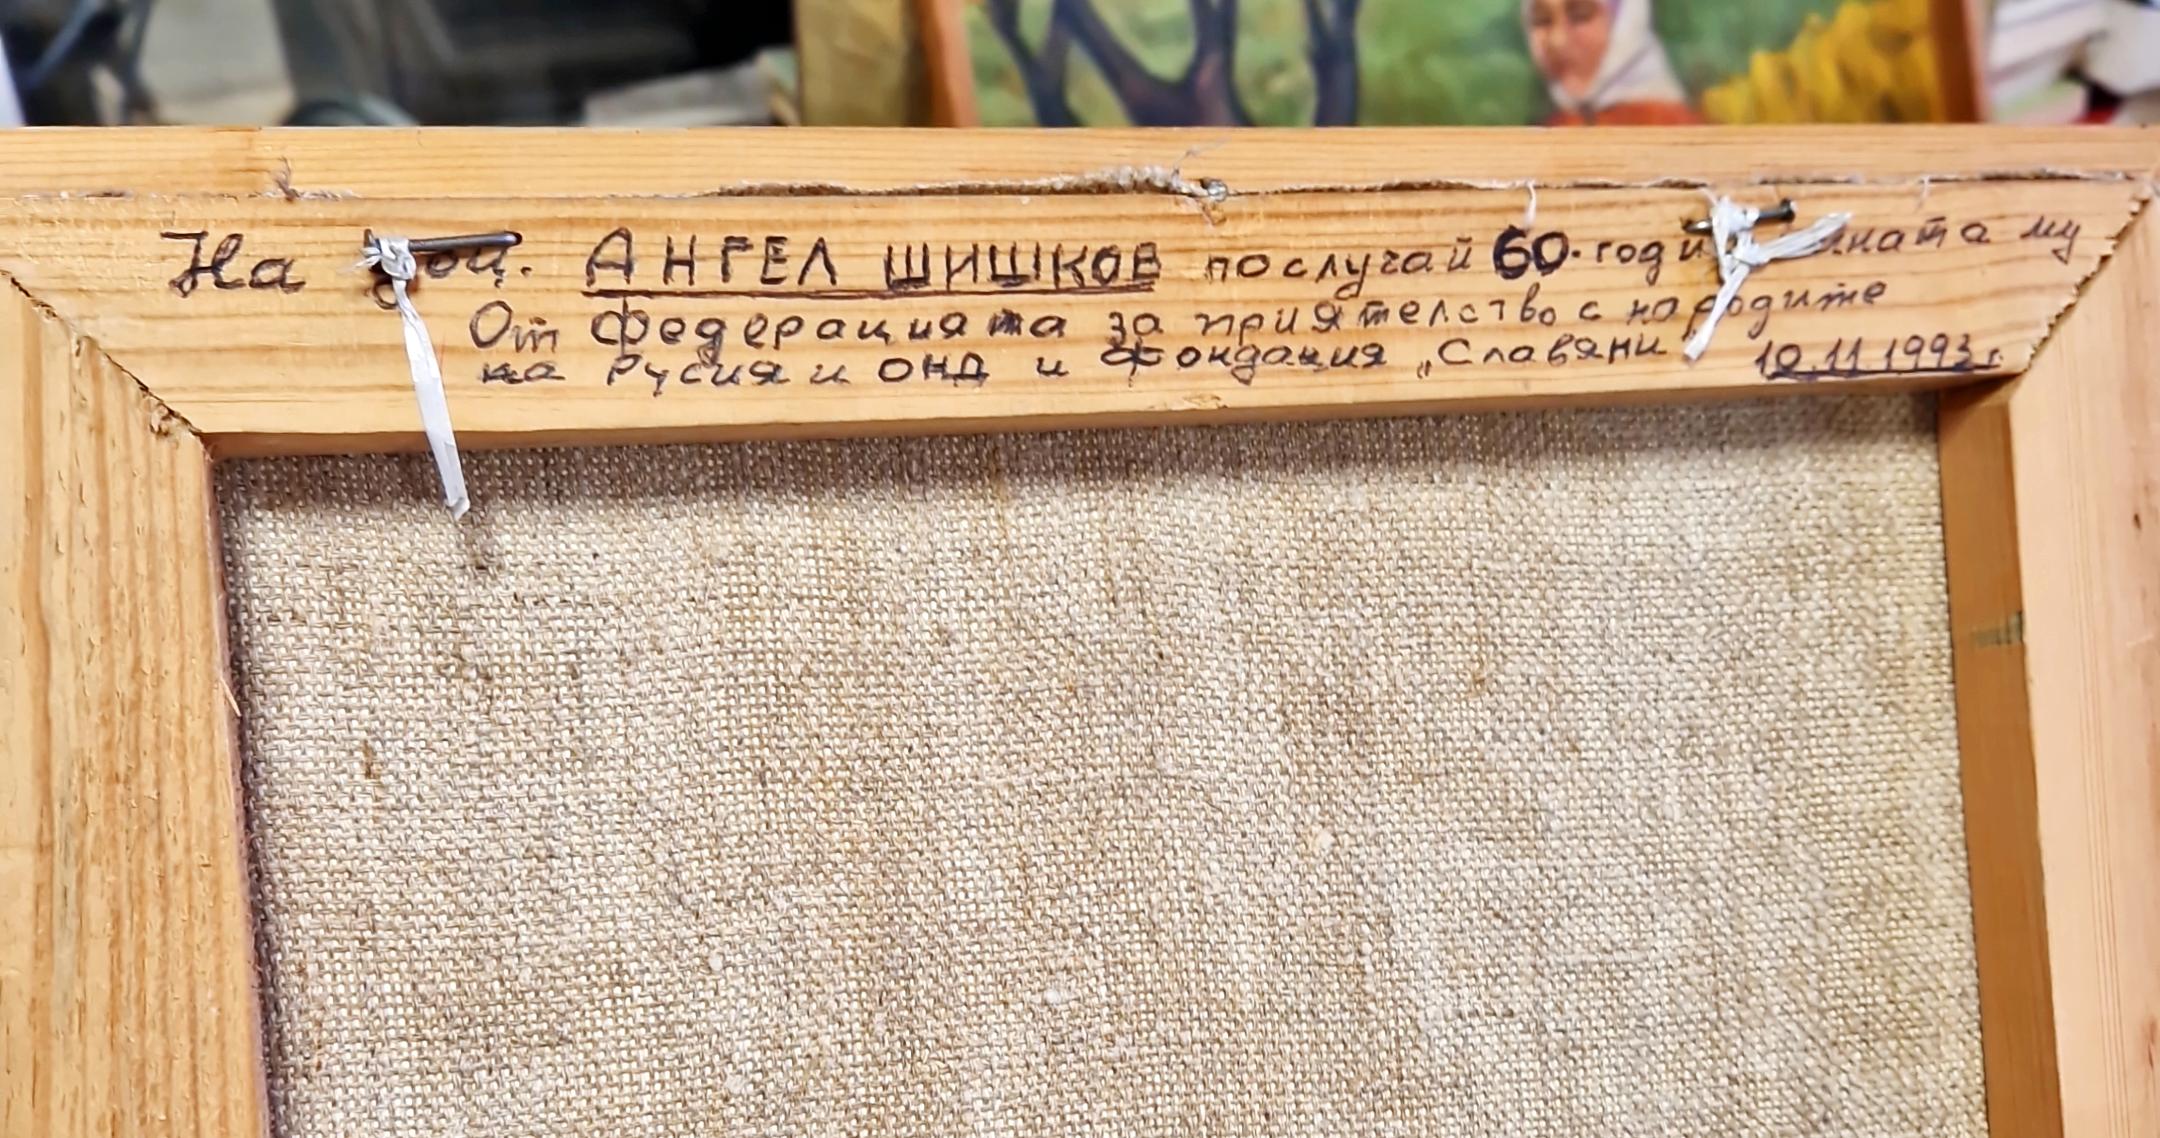 На доц. АНГЕЛ ШИШКОВ послучай 60. му
От Федерацията за приятелство с народите
на Русия и ОНД и Фондация „Славяни" 10.11.1993г.